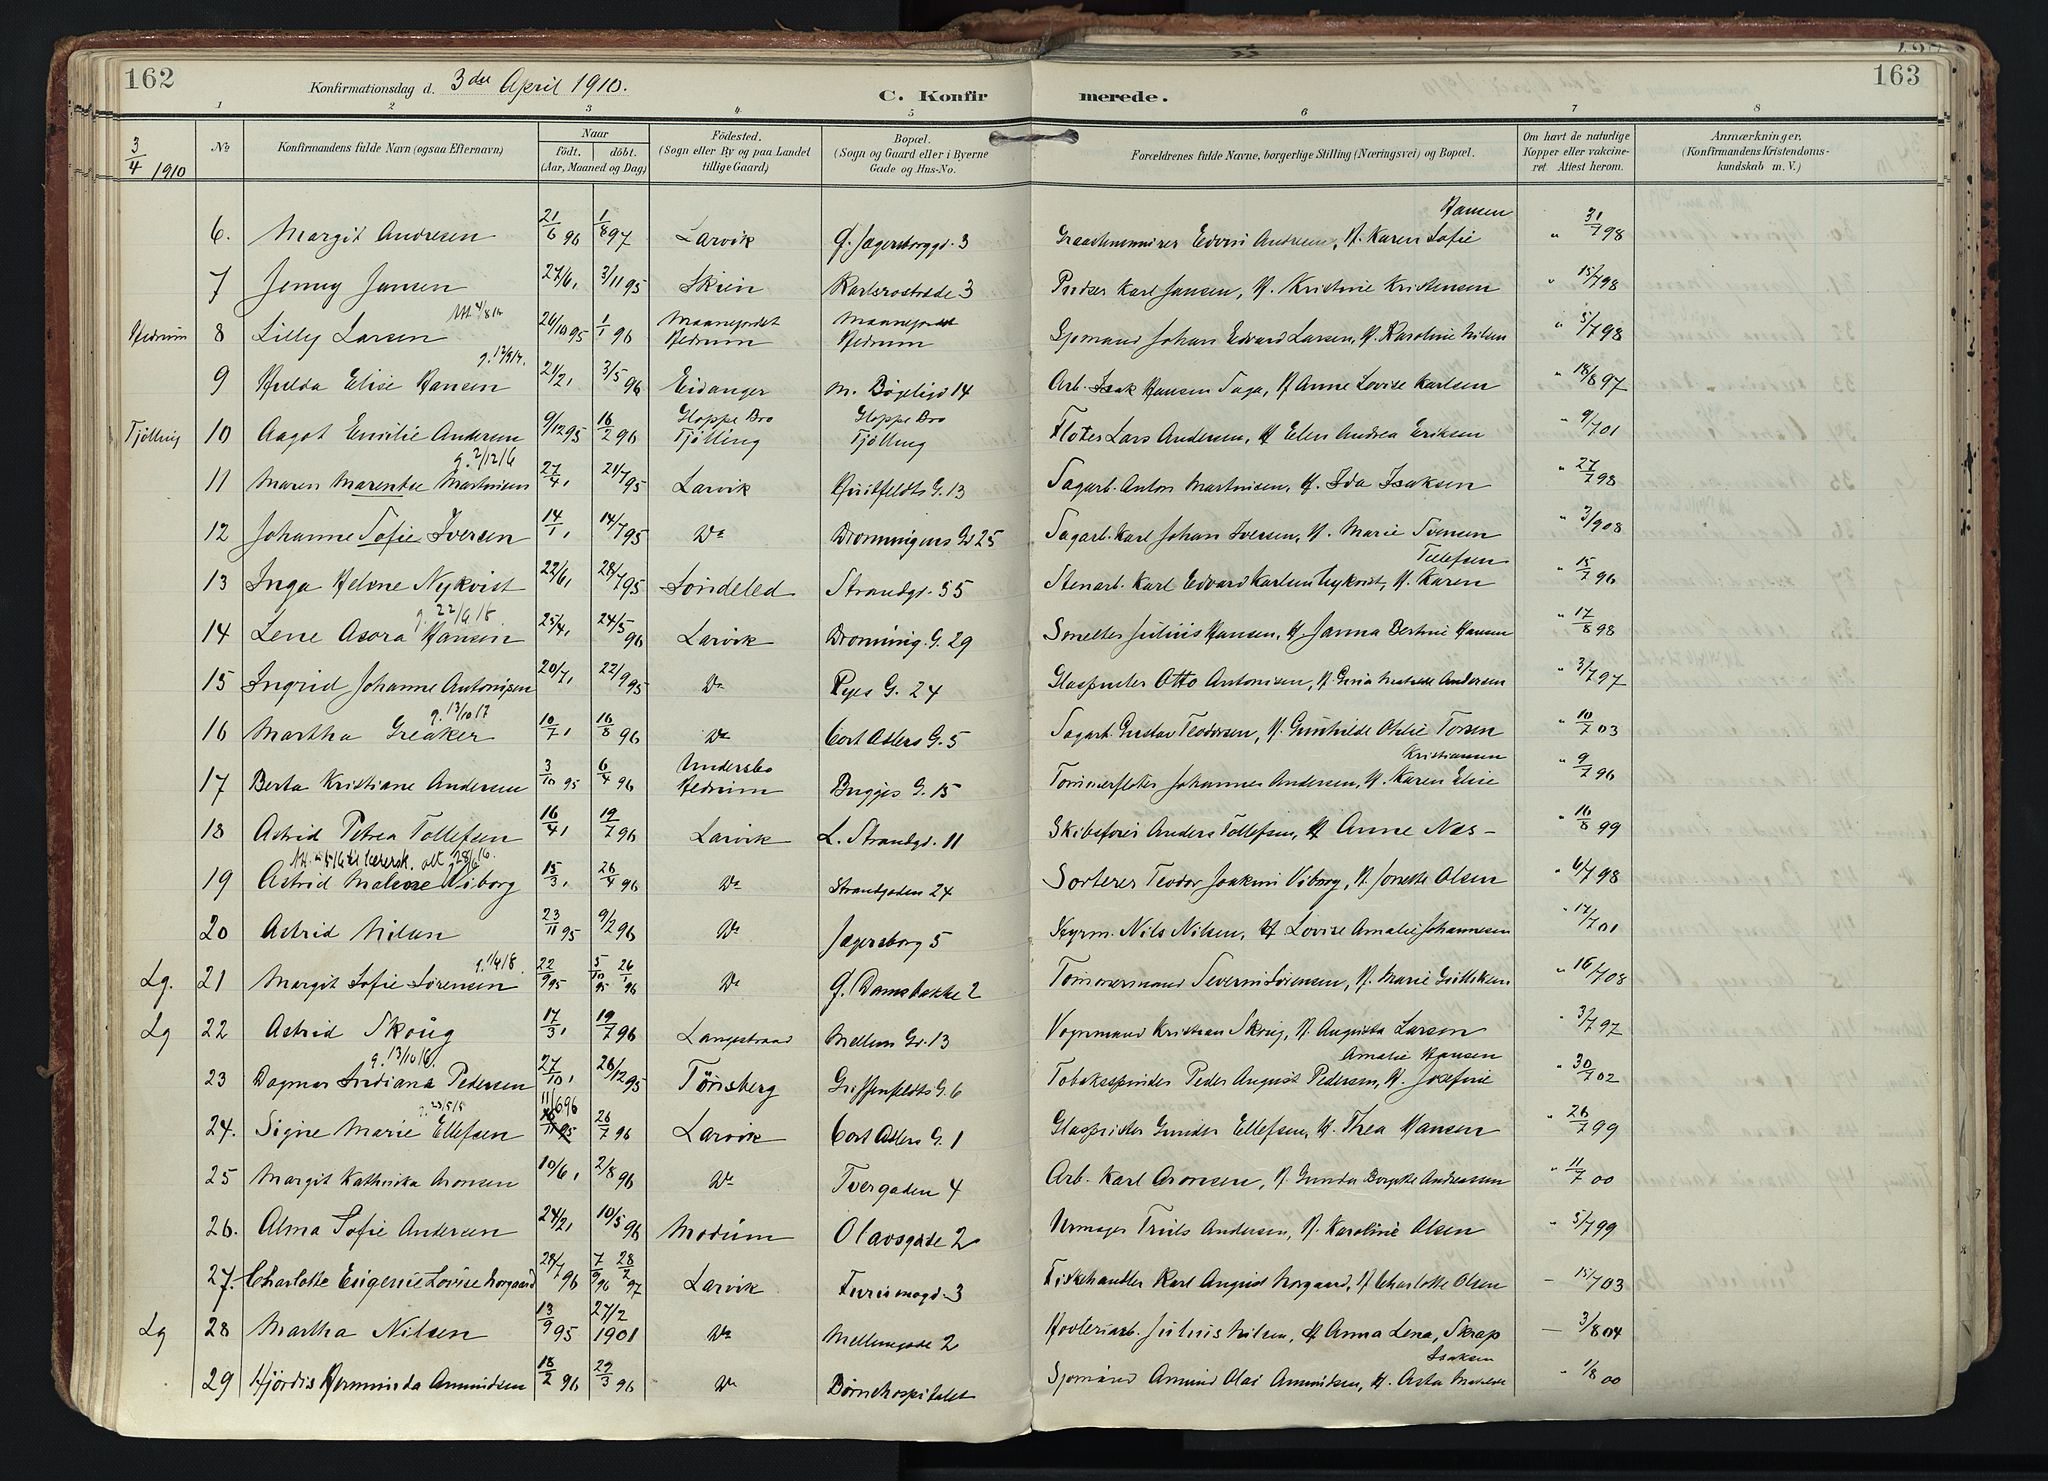 162
Konfirmationsdag d. 3die April 1910.
C. Konfir
merede.
163
1 2 3 4 5 6 7 8
3/4 1910
No
Konfirmandens fulde Navn (ogsaa Efternavn)
Naar
født. døbt.
(Aar, Maaned og Dag)
Fødested.
(Sogn eller By og paa Landet tillige Gaard)
Bopæl.
(Sogn og Gaard eller i Byerne Gade og Hus-No.
Forældrenes fulde Navne, borgerlige Stilling (Næringsvei) og Bopæl.
Om havt de naturlige Kopper eller vakcineret. Attest herom.
Anmærkninger.
(Konfirmandens Kristendomskundskab m. V.)
6. Margit Andresen 21/6 96 1/8 97 Larvik Ø. Jegersborggd. 3 Edvin Andresen, H. Karen Sofie Hansen " 31/7 98
7 Jenny Jansen 27/6, 3/11 95 Skien Karlsrostrade 3 Pudser Karl Jansen, H. Kristine Kristensen " 15/7 98
Hedrum 8 Lilly Larsen 26/10 95 1/1 96 Hedrum Hedrum Sjømand Johan Edvard Larsen, H. Karoline Nilsen " 5/7 98
9 Hulda Elise Hansen g. 12/9 17. 21/2, 3/5 96 Eidanger M. Bøgeligd 14 Arb. Isak Hansen Saga, H. Anne Lovise Karlsen " 18/8 97
Tjølling 10 Aagot Emilie Andersen 9/12 95 16/2 96 Gloppe Bro Tjølling Gloppe Bro Tjølling Fløter Lars Andersen, H. Elen Andrea Eriksen " 9/7 01
11 Maren Marentse Martinisen g. 2/12 16 27/4, 21/7 95 Larvik Huitfeldts G. 13 Sagarb. Anton Martinisen, H. Ida Isaksen " 27/7 98
12 Johanne Sofie Iversen 14/1, 14/7 95 Do Dronningens Gd 25 Sagarb. Karl Johan Iversen, H. Marie Svensen " 3/9 08
13 Inga Helene Nykvist 22/6, 28/7 95 Søndeled Strandgd. 55 Stenarb. Karl Edvard Karlsen Nykvist, H. Karen Tellefsen " 15/7 96
14 Lene Asora Hansen g. 22/6 18. 25/4, 24/5 96 Larvik Dronning. G. 29 Smelter Julius Hansen, H. Janna Bertine Hansen " 17/8 98
15 Ingrid Johanne Antonisen 20/7, 22/9 95 Do Ryes G. 24 Glaspuster Otto Antonisen, H. Gina Matilde Andersen " 3/7 97
16 Martha Greaker g. 13/10 17 10/7, 16/8 96 Do Cort Adlers G. 5 Sagarb. Gustav Teodorsen, H. Gunhilde Otilie Torsen " 10/7 03
17 Berta Kristiane Andersen 3/10 95 6/4 96 Undersbo Hedrum Bugges G. 15 Tømmerfløter Johannes Andersen, H. Karen Elise Kristiansen " 9/7 96
18 Astrid Petrea Tollefsen 16/4, 19/7 96 Larvik L. Strandgd. 11 Skibsfører Anders Tollefsen, H. Anne Næs - " 16/8 99
19 Astrid Malene Viborg 15/3, 26/4 96 Do Strandgaden 24 Sorterer Teodor Joakim Viborg, H. Jonette Olsen " 6/7 98
20 Astrid Nilsen 23/11 95 9/2 96 Do Jegersborg 5 Styrm. Nils Nilsen, H. Lovise Amalie Johannesen " 17/7 01
Lg. 21 Margit Sofie Sørensen g. 1/4 18. 22/9 95 5/10 95 26/1 96 Do Ø. Damsbakke 2 Tømmermand Severin Sørensen, H. Marie Gulliksen " 16/7 08
Lg 22 Astrid Skoug 17/3, 19/7 96 Langestrand Mellem Gd. 13 Vognmand Kristian Skoug, H. Augusta Larsen " 3/7 97
23 Dagmar Indiana Pedersen g. 13/10 16. 27/10, 26/12 95 Tønsberg Griffenfeldts G. 6 Tobaksspinder Peder August Pedersen, H. Josefine Amalie Hansen " 30/7 02
24. Signe Marie Ellefsen 11/6 96 26/7 96 Larvik Cort Adlers G. 1 Glaspuster Gunder Ellefsen, H. Thea Hansen " 26/7 99
25 Margit Kathinka Aronsen 10/6, 2/8 96 Do Tvergaden 4 Arb. Karl Aronsen, H. Gunda Andreassen " 11/7 00
26. Alma Sofie Andersen 24/2, 10/5 96 Modum Olavsgade 2 Urmager Truls Andersen, H. Karoline Olsen " 5/7 99
27. Charlotte Eugenie Lovise Norgaard 28/7 96 7/9 96 28/2 97 Larvik Furumogd. 3 Fiskehandler Karl August Norgaard, H. Charlotte Olsen - 15/7 03
Lg 28 Martha Nilsen 13/9 95 27/2 1901 Do Mellemgade 2 Høvleriarb. Julius Nilsen, H. Anna Lena, Skrap — 3/8 04
29 Hjördis Herminda Amundsen 18/2 96 29/3 96 Do Børnehospitalet Sjømand Amund Olai Amundsen, H. Asta Matilde Isaksen " 1/8 00